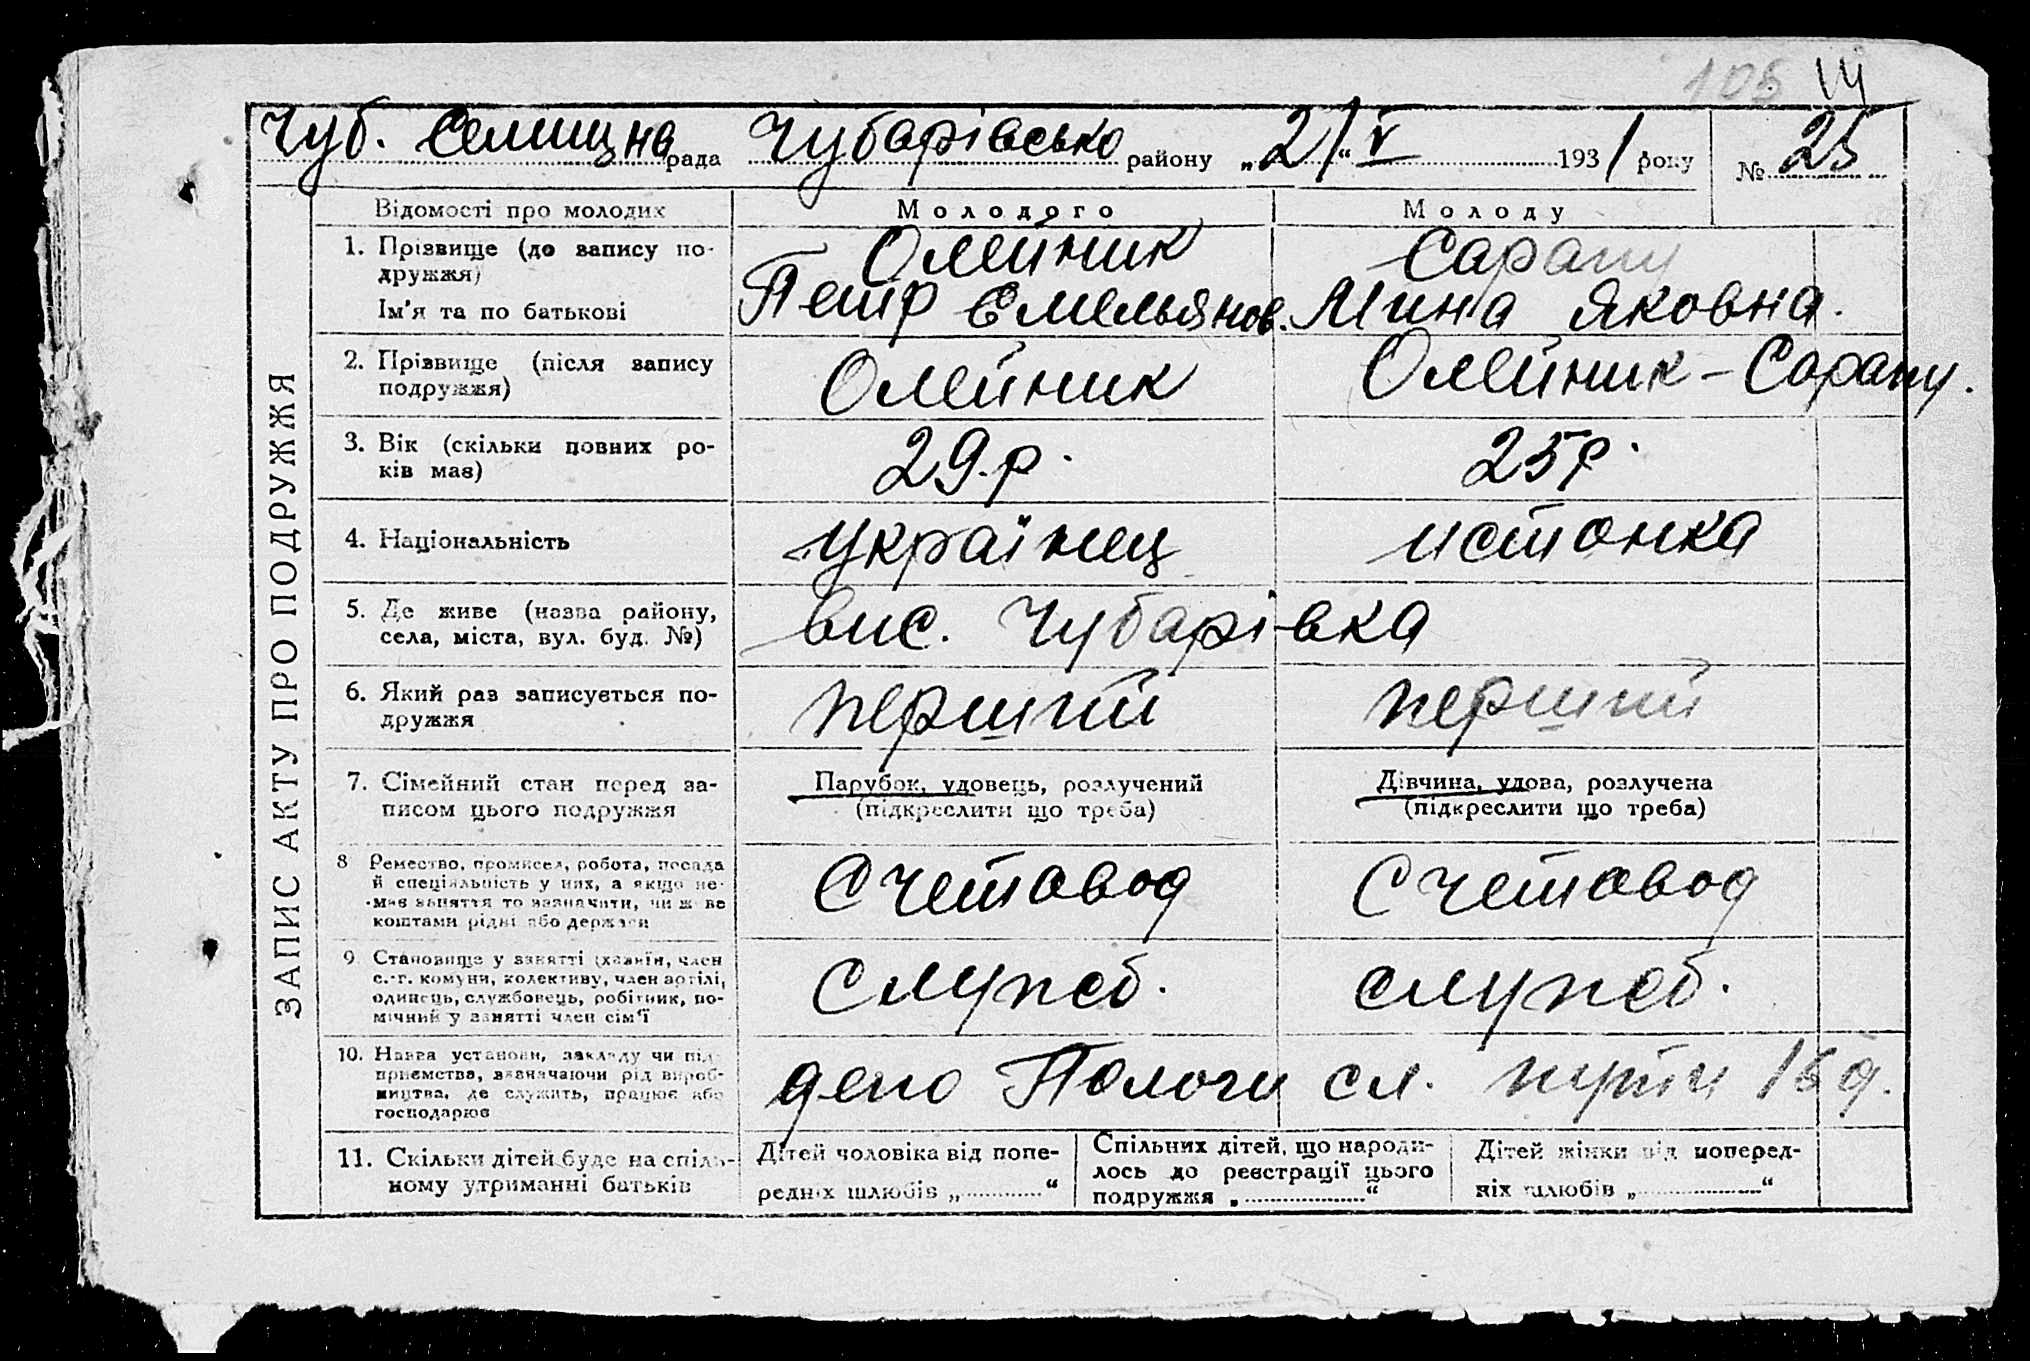 105 14
Чуб. Селищна рада Чубарівсько району „21“ V 1931 року № 25
ЗАПИС АКТУ ПРО ПОДРУЖЖЯ
Відомості про молодих Молодого Молоду
1. Прізвище (до запису по-
дружжя) Олейник Сарапу
Ім'я та по батькові Петр Емельянов. Мина Яковна.
2. Прізвище (після запису
подружжя) Олейник Олейник-Сарапу.
3. Вік (скільки повних ро-
ків має) 29.р. 25р.
4. Національність українец истонка
5. Де живе (назва району,
села, міста, вул. буд. №) вис. Чубарівка
6. Який раз записується по-
дружжя перший перший
7. Сімейний стан перед за-
писом цього подружжя
Парубок, удовець, розлучений
(підкреслити що треба)
Дівчина, удова, розлучена
(підкреслити що треба)
8 Ремество, промисел, робота, посада
й спеціяльність у них, а якщо не-
має заняття то зазначити, чи живе
коштами рідні або держави
Счетовод Счетовод
9 Становище у занятті (хазяїн, член
с.-г. комуни, колективу, член артілі,
одинець, службовець, робітник, по-
мічний у занятті член сім'ї
Служб. служб.
10. Назва установи, закладу чи під-
приємства, зазначаючи рід вироб-
ництва, де служить, працює або
господарює
депо Пологи сл. пути 15д.
11. Скільки дітей буде на спіль-
ному утриманні батьків
Дітей чоловіка від попе-
редніх шлюбів „ “
Спільних дітей, що народи-
лось до реєстрації цього
подружжя „ “
Дітей жінки від поперед-
ніх шлюбів „ “